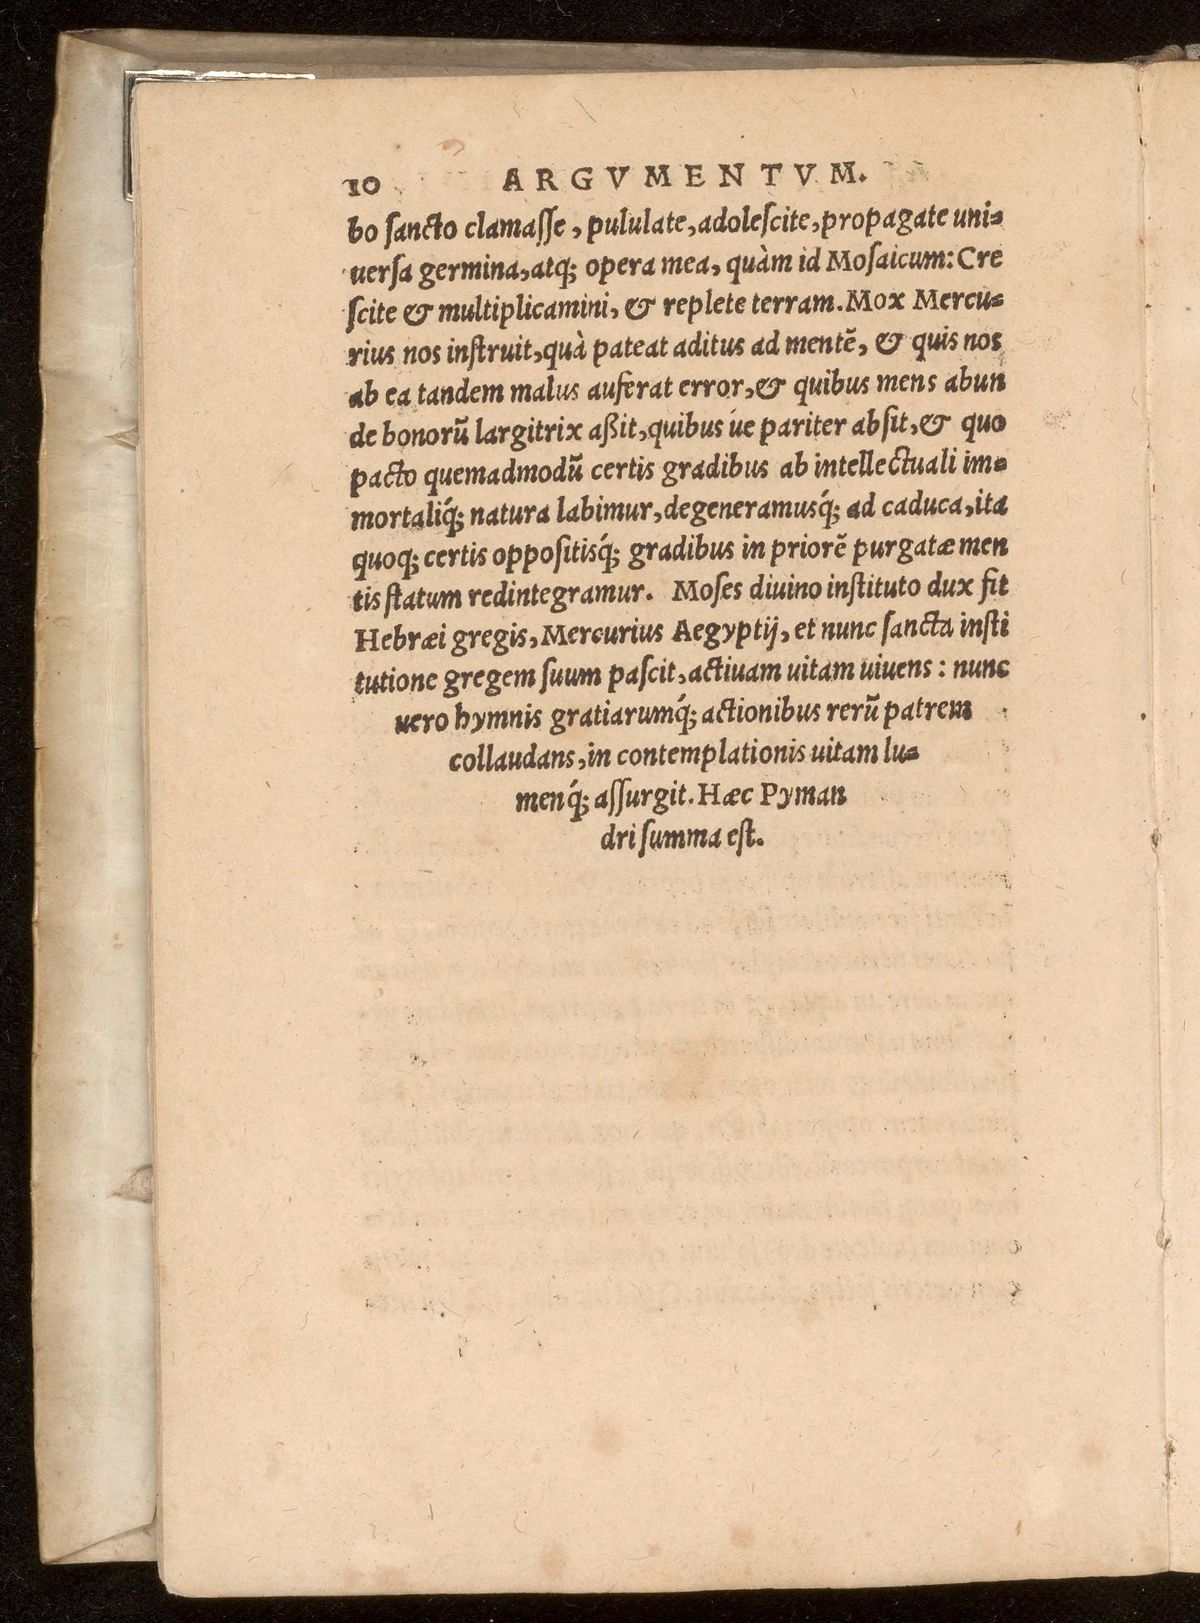 10 ARGVMENTVM.
bo ſancto clamaſſe, pululate, adoleſcite, propagate uni-
uerſa germina, atq; opera mea, quàm id Moſaicum: Cre
ſcite & multiplicamini, & replete terram. Mox Mercu-
rius nos inſtruit, quà pateat aditus ad mentē, & quis nos
ab ea tandem malus auferat error, & quibus mens abun
de bonorū largitrix aßit, quibus úe pariter abſit, & quo
pacto quemadmodū certis gradibus ab intellectuali im-
mortaliq́; natura labimur, degeneramusq́; ad caduca, ita
quoq; certis oppoſitisq́; gradibus in priorē purgatæ men
tis ſtatum redintegramur. Moſes diuino inſtituto dux fit
Hebræi gregis, Mercurius Aegyptij, et nunc ſancta inſti
tutione gregem ſuum paſcit, actiuam uitam uiuens: nunc
uero hymnis gratiarumq́; actionibus rerū patrem
collaudans, in contemplationis uitam lu-
menq́; aſſurgit. Hæc Pyman
dri ſumma eſt.